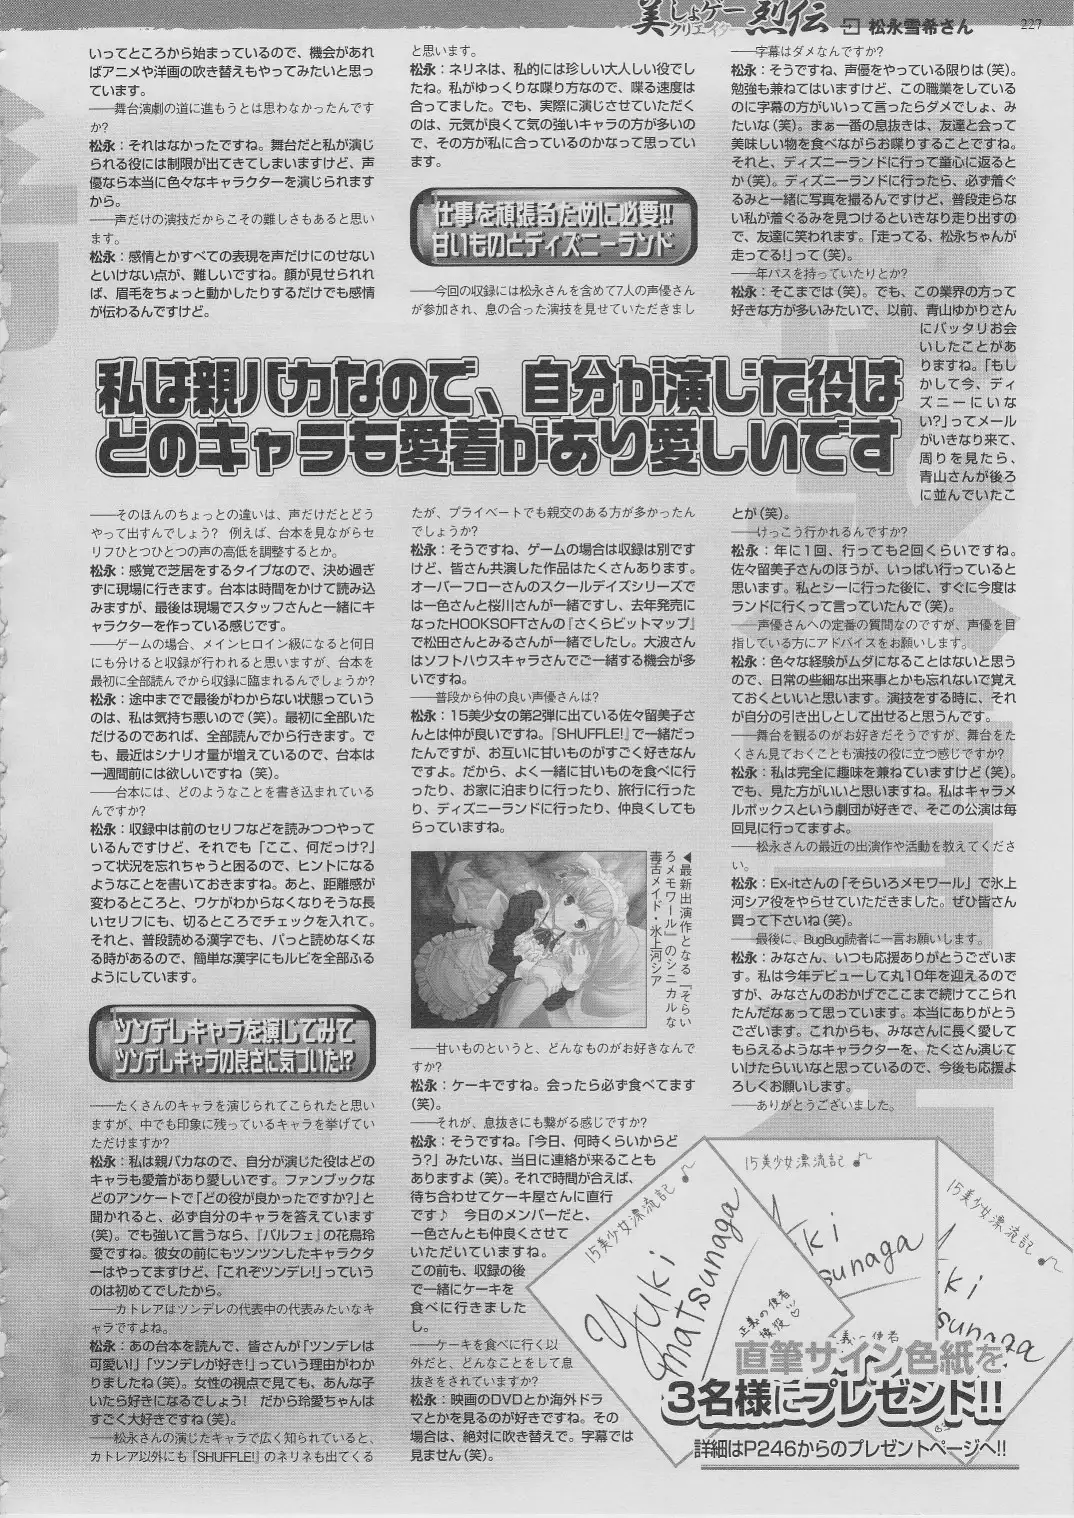 美しょゲー烈伝
クリエイター
松永雪希さん
227
いってところから始まっているので、機会があれ
ばアニメや洋画の吹き替えもやってみたいと思っ
ています。
――舞台演劇の道に進もうとは思わなかったんです
か?
松永：それはなかったですね。舞台だと私が演じ
られる役には制限が出てきてしまいますけど、声
優なら本当に色々なキャラクターを演じられます
から。
――声だけの演技だからこその難しさもあると思い
ます。
松永：感情とかすべての表現を声だけにのせない
といけない点が、難しいですね。顔が見せられれ
ば、眉毛をちょっと動かしたりするだけでも感情
が伝わるんですけど。
私は親バカなので、自分が演じた役は
どのキャラも愛着があり愛しいです
――そのほんのちょっとの違いは、声だけだとどう
やって出すんでしょう?　例えば、台本を見ながらセ
リフひとつひとつの声の高低を調整するとか。
松永：感覚で芝居をするタイプなので、決め過ぎ
ずに現場に行きます。台本は時間をかけて読み込
みますが、最後は現場でスタッフさんと一緒にキ
ャラクターを作っている感じです。
――ゲームの場合、メインヒロイン級になると何日
にも分けると収録が行われると思いますが、台本を
最初に全部読んでから収録に臨まれるんでしょうか?
松永：途中までで最後がわからない状態っていう
のは、私は気持ち悪いので（笑）。最初に全部いた
だけるのであれば、全部読んでから行きます。で
も、最近はシナリオ量が増えているので、台本は
一週間前には欲しいですね（笑）。
――台本には、どのようなことを書き込まれている
んですか?
松永：収録中は前のセリフなどを読みつつやって
いるんですけど、それでも「ここ、何だっけ?」
って状況を忘れちゃうと困るので、ヒントになる
ようなことを書いておきますね。あと、距離感が
変わるところと、ワケがわからなくなりそうな長
いセリフにも、切るところでチェックを入れて。
それと、普段読める漢字でも、パっと読めなくな
る時があるので、簡単な漢字にもルビを全部ふる
ようにしています。
ツンデレキャラを演じてみて
ツンデレキャラの良さに気づいた!?
――たくさんのキャラを演じられてこられたと思い
ますが、中でも印象に残っているキャラを挙げてい
ただけますか?
松永：私は親バカなので、自分が演じた役はどの
キャラも愛着があり愛しいです。ファンブックな
どのアンケートで「どの役が良かったですか?」と
聞かれると、必ず自分のキャラを答えています
（笑）。でも強いて言うなら、『パルフェ』の花鳥玲
愛ですね。彼女の前にもツンツンしたキャラクタ
ーはやってますけど、「これぞツンデレ!」っていう
のは初めてでしたから。
――カトレアはツンデレの代表中の代表みたいなキ
ャラですよね。
松永：あの台本を読んで、皆さんが「ツンデレは
可愛い!」「ツンデレが好き!」っていう理由がわか
りましたね（笑）。女性の視点で見ても、あんな子
いたら好きになるでしょう!　だから玲愛ちゃんは
すごく大好きですね（笑）。
――松永さんの演じたキャラで広く知られていると、
カトレア以外にも『SHUFFLE!』のネリネも出てくる
と思います。
松永：ネリネは、私的には珍しい大人しい役でし
たね。私がゆっくりな喋り方なので、喋る速度は
合ってました。でも、実際に演じさせていただく
のは、元気が良くて気の強いキャラの方が多いの
で、その方が私に合っているのかなって思ってい
ます。
仕事を頑張るために必要!!
甘いものとディズニーランド
――今回の収録には松永さんを含めて7人の声優さん
が参加され、息の合った演技を見せていただきまし
たが、プライベートでも親交のある方が多かったん
でしょうか?
松永：そうですね、ゲームの場合は収録は別です
けど、皆さん共演した作品はたくさんあります。
オーバーフローさんのスクールデイズシリーズで
は一色さんと桜川さんが一緒ですし、去年発売に
なったHOOKSOFTさんの『さくらビットマップ』
で松田さんとみるさんが一緒でしたし。大波さん
はソフトハウスキャラさんでご一緒する機会が多
いですね。
――普段から仲の良い声優さんは?
松永：15美少女の第2弾に出ている佐々留美子さ
んとは仲が良いですね。『SHUFFLE!』で一緒だっ
たんですが、お互いに甘いものがすごく好きなん
ですよ。だから、よく一緒に甘いものを食べに行
ったり、お家に泊まりに行ったり、旅行に行った
り、ディズニーランドに行ったり、仲良くしても
らっていますね。
◀最新出演作となる『そらい
ろメモワール』のシニカルな
毒舌メイド・氷上河シア
――甘いものというと、どんなものがお好きなんで
すか?
松永：ケーキですね。会ったら必ず食べてます
（笑）。
――それが、息抜きにも繋がる感じですか?
松永：そうですね。「今日、何時くらいからど
う?」みたいな、当日に連絡が来ることも
ありますよ（笑）。それで時間が合えば、
待ち合わせてケーキ屋さんに直行
です♪　今日のメンバーだと、
一色さんとも仲良くさせて
いただいていますね。
この前も、収録の後
で一緒にケーキを
食べに行きました
し。
――ケーキを食べに行く以
外だと、どんなことをして息
抜きをされていますか?
松永：映画のDVDとか海外ドラ
マとかを見るのが好きですね。その
場合は、絶対に吹き替えで。字幕では
見ません（笑）。
――字幕はダメなんですか?
松永：そうですね、声優をやっている限りは（笑）。
勉強も兼ねてはいますけど、この職業をしている
のに字幕の方がいいって言ったらダメでしょ、み
たいな（笑）。まぁ一番の息抜きは、友達と会って
美味しい物を食べながらお喋りすることですね。
それと、ディズニーランドに行って童心に返ると
か（笑）。ディズニーランドに行ったら、必ず着ぐ
るみと一緒に写真を撮るんですけど、普段走らな
い私が着ぐるみを見つけるといきなり走り出すの
で、友達に笑われます。「走ってる、松永ちゃんが
走ってる!」って（笑）。
――年パスを持っていたりとか?
松永：そこまでは（笑）。でも、この業界の方って
好きな方が多いみたいで、以前、青山ゆかりさん
にバッタリお会
いしたことがあ
りますね。「もし
かして今、ディ
ズニーにいな
い?」ってメール
がいきなり来て、
周りを見たら、
青山さんが後ろ
に並んでいたこ
とが（笑）。
――けっこう行かれるんですか?
松永：年に1回、行っても2回くらいですね。
佐々留美子さんのほうが、いっぱい行っていると
思います。私とシーに行った後に、すぐに今度は
ランドに行くって言っていたんで（笑）。
――声優さんへの定番の質問なのですが、声優を目
指している方にアドバイスをお願いします。
松永：色々な経験がムダになることはないと思う
ので、日常の些細な出来事とかも忘れないで覚え
ておくといいと思います。演技をする時に、それ
が自分の引き出しとして出せると思うんです。
――舞台を観るのがお好きだそうですが、舞台をた
くさん見ておくことも演技の役に立つ感じですか?
松永：私は完全に趣味を兼ねていますけど（笑）。
でも、見た方がいいと思いますね。私はキャラメ
ルボックスという劇団が好きで、そこの公演は毎
回見に行ってますよ。
――松永さんの最近の出演作や活動を教えてくださ
い。
松永：Ex-itさんの『そらいろメモワール』で氷上
河シア役をやらせていただきました。ぜひ皆さん
買って下さいね（笑）。
――最後に、BugBug読者に一言お願いします。
松永：みなさん、いつも応援ありがとうございま
す。私は今年デビューして丸10年を迎えるので
すが、みなさんのおかげでここまで続けてこられ
たんだなぁって思っています。本当にありがとう
ございます。これからも、みなさんに長く愛して
もらえるようなキャラクターを、たくさん演じて
いけたらいいなと思っているので、今後も応援よ
ろしくお願いします。
――ありがとうございました。
15美少女漂流記♪
Yuki
matsunaga
正義の使者
15美少女漂流記♪
ki
sunaga
15美少女漂流記♪
ki
sunaga
直筆サイン色紙を
3名様にプレゼント!!
詳細はP246からのプレゼントページへ!!